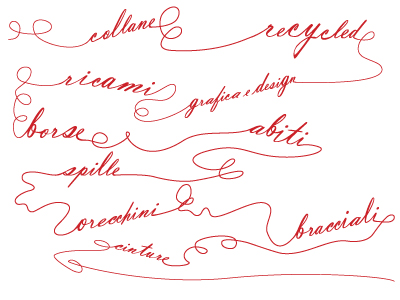 collane recycled
ricami grafica e design
borse abiti
spille
orecchini bracciali
cinture